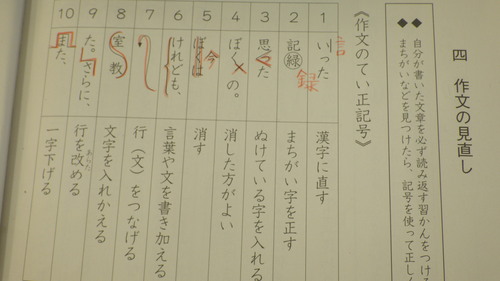 四 作文の見直し
◆自分が書いた文章を必ず読み返す習かんをつける
◆まちがいなどを見つけたら、記号を使って正し
《作文のてい正記号》
1 いった 言 漢字に直す
2 記緑 録 まちがい字を正す
3 思た ぬけている字を入れる
4 ぼくの。 消した方がよい
5 ぼくは 今 消す
6 けれども、 言葉や文を書き加える
7 行(文)をつなげる
8 室教 文字を入れかえる
9 た。さらに、 行を改める あらた
10 また、 一字下げる